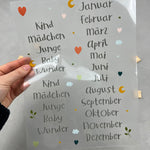 Januar
Februar
März
April
Mai
Juni
Juli
August
September
Oktober
November
Dezember
Kind
Mädchen
Junge
Baby
Wunder
Kind
Mädchen
Junge
Baby
Wunder